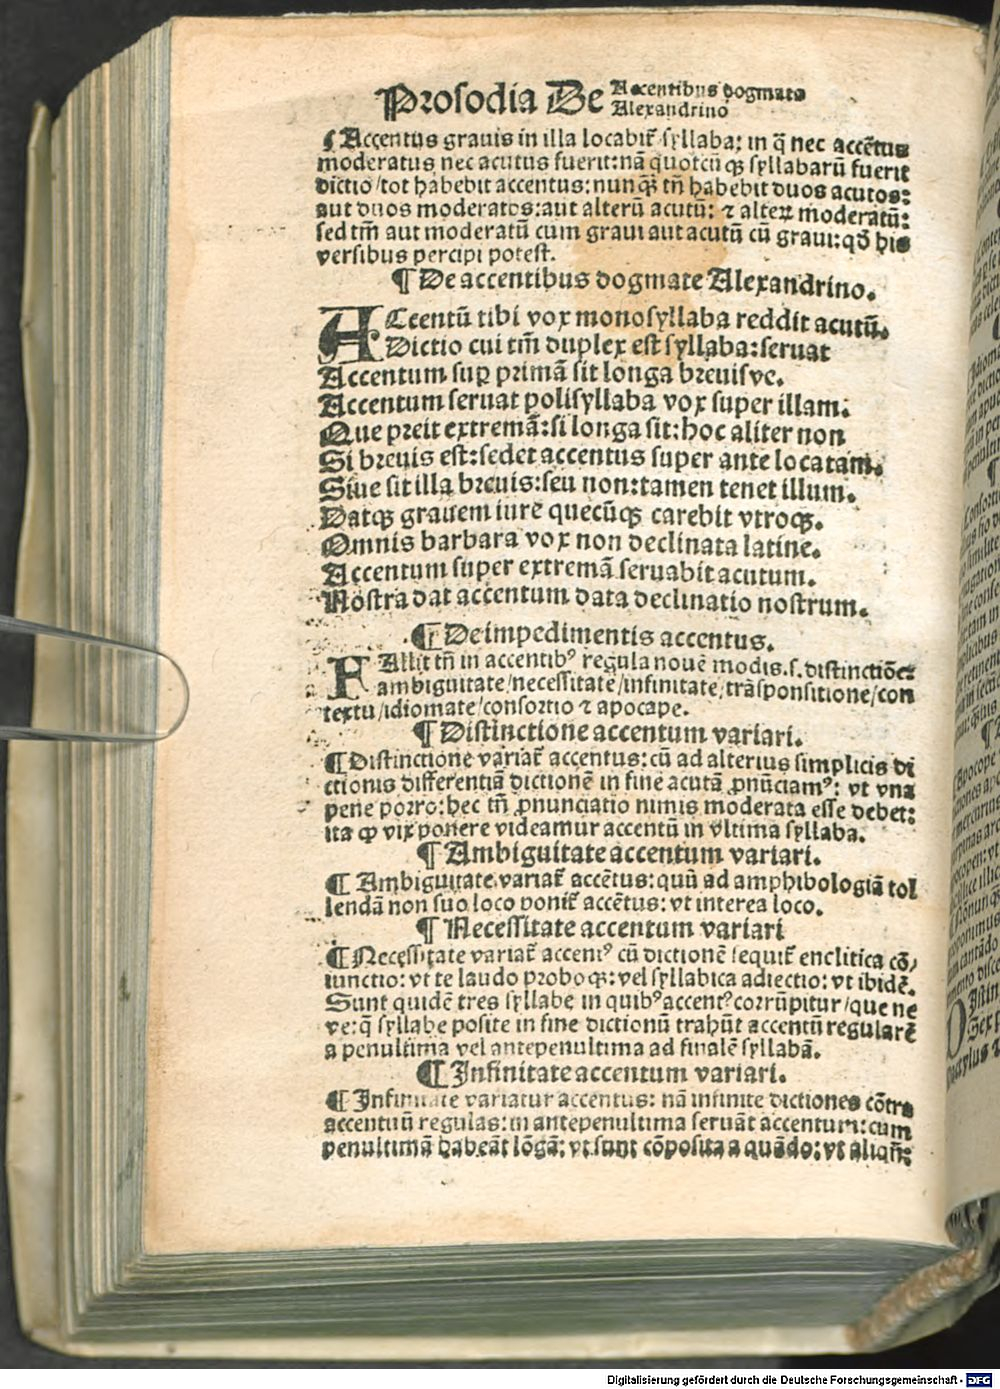 Prosodia De Accentibus dogmate
Alexandrino
¶ Accentus grauis in illa locabit᷑ syllaba: in q̄ nec accẽtus
moderatus nec acutus fuerit: nã quotcũ qꝫ syllabarũ fuerit
dictio / tot habebit accentus: nunq̃ꝫ tñ habebit duos acutos:
aut duos moderatos: aut alterũ acutũ: ⁊ alteꝝ moderatũ:
sed tm̃ aut moderatũ cum graui aut acutũ cũ graui: qđ his
versibus percipi potest.
¶ De accentibus dogmate Alexandrino.
ACcentũ tibi vox monosyllaba reddit acutũ.
Dictio cui tm̃ duplex est syllaba: seruat
Accentum suꝑ primã sit longa breuisve.
Accentum seruat polisyllaba vox super illam.
Que preit extremã: si longa sit: hoc aliter non
Si breuis est: sedet accentus super ante locatam.
Siue sit illa breuis: seu non: tamen tenet illum.
Datqꝫ grauem iure quecũqꝫ carebit vtroqꝫ.
Omnis barbara vox non declinata latine.
Accentum super extremã seruabit acutum.
Nostra dat accentum data declinatio nostrum.
¶ De impedimentis accentus.
FAllit tñ in accentibꝰ regula nouẽ modis. s. distinctiõe:
ambiguitate / necessitate / infinitate / trãspositione / con
textu / idiomate / consortio ⁊ apocape.
¶ Distinctione accentum variari.
¶ Distinctione variat᷑ accentus: cũ ad alterius simplicis di
ctionis differentiã dictionẽ in fine acutã ꝓnũciamꝰ: vt vna
pene porro: hec tñ ꝓnunciatio nimis moderata esse debet:
ita ꝙ vix ponere videamur accentũ in vltima syllaba.
¶ Ambiguitate accentum variari.
¶ Ambiguitate variat᷑ accẽtus: quũ ad amphibologiã tol
lendã non suo loco ponit᷑ accẽtus: vt interea loco.
¶ Necessitate accentum variari
¶ Necessitate variat᷑ accentꝰ cũ dictionẽ sequit᷑ enclitica cõ/
iunctio: vt te laudo proboqꝫ: vel syllabica adiectio: vt ibidẽ.
Sunt quidẽ tres syllabe in quibꝰ accentꝰ corrũpitur / que ne
ve: q̄ syllabe posite in fine dictionũ trahũt accentũ regularẽ
a penultima vel antepenultima ad finalẽ syllabã.
¶ Infinitate accentum variari.
¶ Infinitate variatur accentus: nã infinite dictiones cõtra
accentuũ regulas: in antepenultima seruãt accentum: cum
penultimã habeãt lõgã: vt sunt cõposita a quãdo: vt aliqñ:
Digitalisierung gefördert durch die Deutsche Forschungsgemeinschaft - DFG